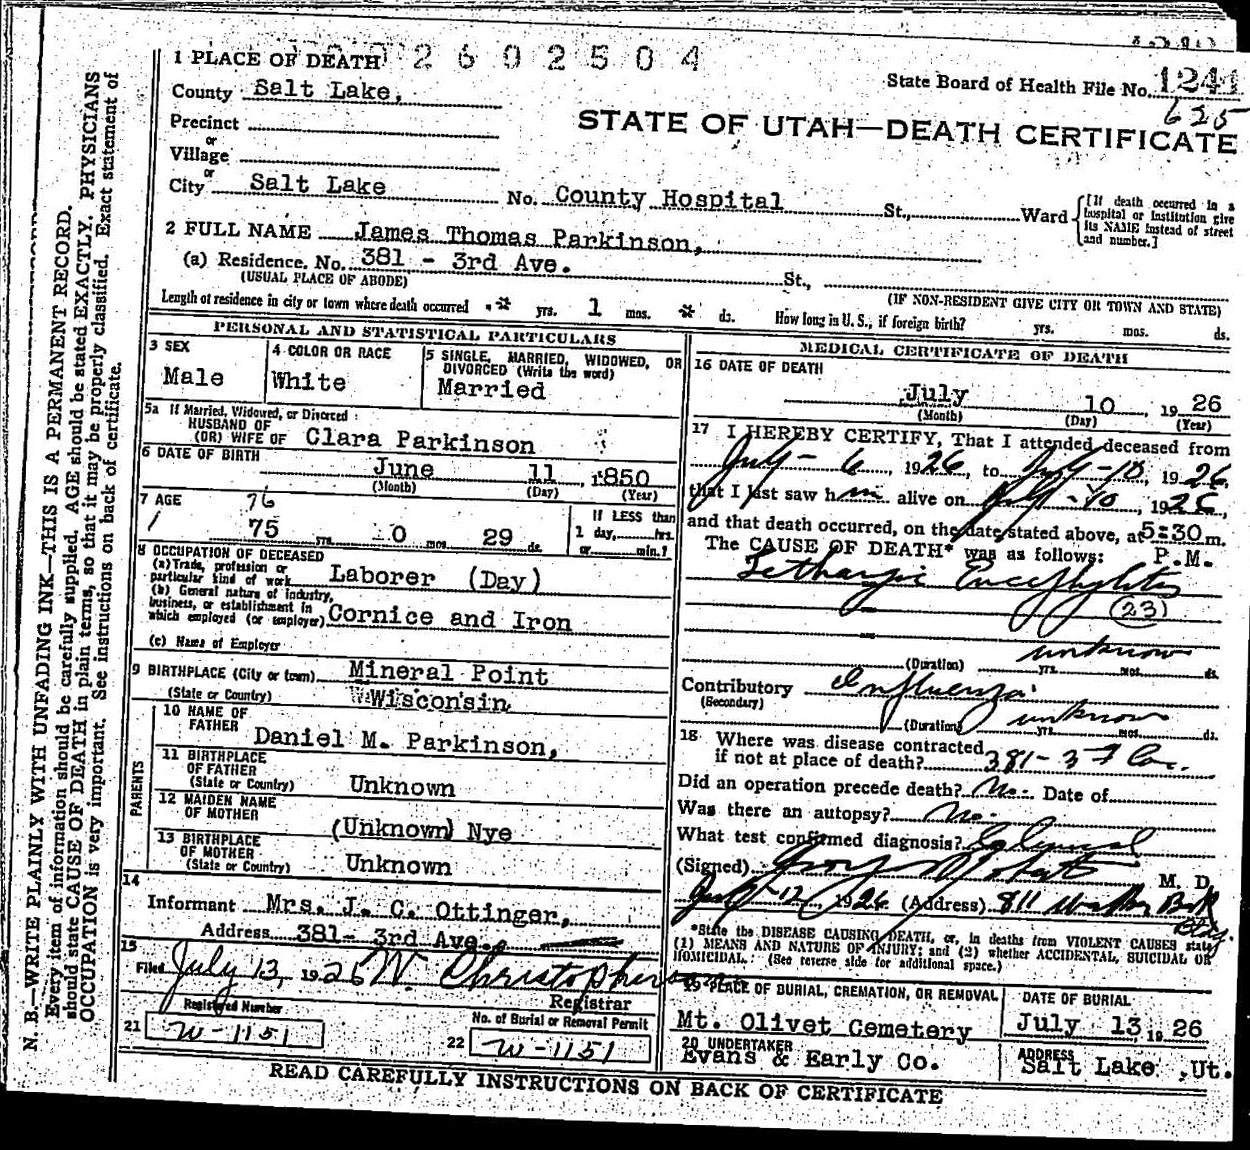 1 PLACE OF DEATH 2602504
State Board of Health File No. 1241
625
County Salt Lake,
STATE OF UTAH—DEATH CERTIFICATE
Precinct
or
Village
or
City Salt Lake No. County Hospital St., Ward
[If death occurred in a
hospital or institution give
its NAME instead of street
and number.]
2 FULL NAME James Thomas Parkinson,
(a) Residence. No. 381 - 3rd Ave. St.,
(USUAL PLACE OF ABODE) (IF NON-RESIDENT GIVE CITY OR TOWN AND STATE)
Length of residence in city or town where death occurred * yrs. 1 mos. * ds. How long in U. S., if foreign birth? yrs. mos. ds.
PERSONAL AND STATISTICAL PARTICULARS
3 SEX
Male
4 COLOR OR RACE
White
5 SINGLE, MARRIED, WIDOWED, OR
DIVORCED (Write the word)
Married
5a If Married, Widowed, or Divorced
HUSBAND OF
(OR) WIFE OF Clara Parkinson
6 DATE OF BIRTH
June 11, 1850
(Month) (Day) (Year)
7 AGE 76
75 yrs. 0 mos. 29 ds.
If LESS than
1 day, hrs.
or min.?
8 OCCUPATION OF DECEASED
(a) Trade, profession or
particular kind of work Laborer (Day)
(b) General nature of industry,
business, or establishment in
which employed (or employer) Cornice and Iron
(c) Name of Employer
9 BIRTHPLACE (City or town) Mineral Point
(State or Country) Wisconsin
PARENTS
10 NAME OF
FATHER
Daniel M. Parkinson,
11 BIRTHPLACE
OF FATHER
(State or Country) Unknown
12 MAIDEN NAME
OF MOTHER
(Unknown) Nye
13 BIRTHPLACE
OF MOTHER
(State or Country) Unknown
14
Informant Mrs. J. C. Ottinger,
Address 381- 3rd Ave.,
15
Filed July 13, 1926 W. Christopherson
Registrar
Registered Number
21 W-1151
No. of Burial or Removal Permit
22 W-1151
MEDICAL CERTIFICATE OF DEATH
16 DATE OF DEATH
July 10, 1926
(Month) (Day) (Year)
17 I HEREBY CERTIFY, That I attended deceased from
July - 6, 1926, to July - 10 1926
that I last saw him alive on July - 10, 1926,
and that death occurred, on the date stated above, at 5:30 m.
The CAUSE OF DEATH* was as follows: P.M.
Lethargic Encephylites
(23)
unknown
(Duration) yrs. mos. ds.
Contributory Influenza
(Secondary)
unknown
(Duration) yrs. mos. ds.
18 Where was disease contracted
if not at place of death? 381 - 3
Did an operation precede death? No. Date of
Was there an autopsy? No.
What test confirmed diagnosis?
(Signed) M. D.
July - 12 1926 (Address) 811
*State the DISEASE CAUSING DEATH, or, in deaths from VIOLENT CAUSES state
(1) MEANS AND NATURE OF INJURY; and (2) whether ACCIDENTAL, SUICIDAL OR
HOMICIDAL. (See reverse side for additional space.)
19 PLACE OF BURIAL, CREMATION, OR REMOVAL
Mt. Olivet Cemetery
DATE OF BURIAL
July 13, 1926
20 UNDERTAKER
Evans & Early Co.
ADDRESS
Salt Lake, Ut.
READ CAREFULLY INSTRUCTIONS ON BACK OF CERTIFICATE
N. B.—WRITE PLAINLY WITH UNFADING INK—THIS IS A PERMANENT RECORD.
Every item of information should be carefully supplied. AGE should be stated EXACTLY. PHYSICIANS
should state CAUSE OF DEATH in plain terms, so that it may be properly classified. Exact statement of
OCCUPATION is very important. See instructions on back of certificate.